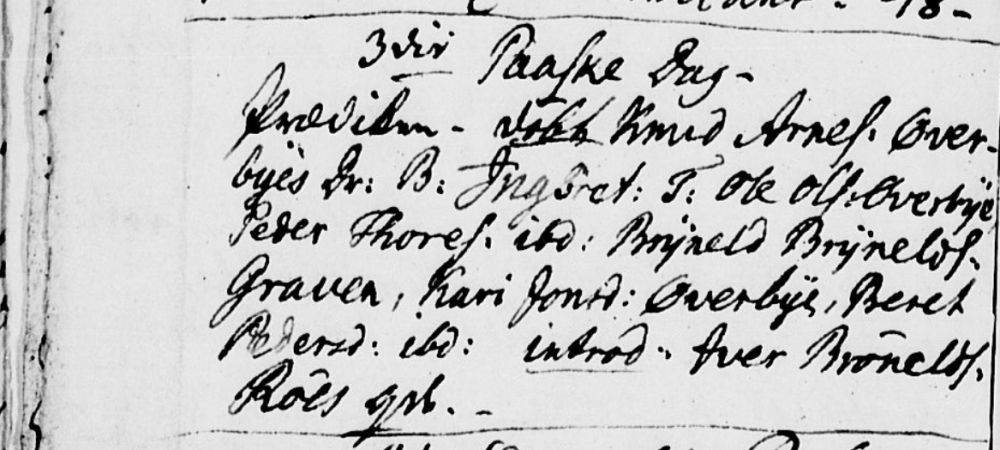 18 -
3die Paaske Dag -
Prædiken - döbt Knud Arnes. Over-
byes Dr: B: Ingbret: T: Ole Ols: Overbÿe,
Peder Thores. ibd: Brÿneld Brÿnelds.
Graven, Kari Jonsd: Overbÿe, Beret
Pedersd: ibd: introd: Iver Brönelds.
Röes qvb. -